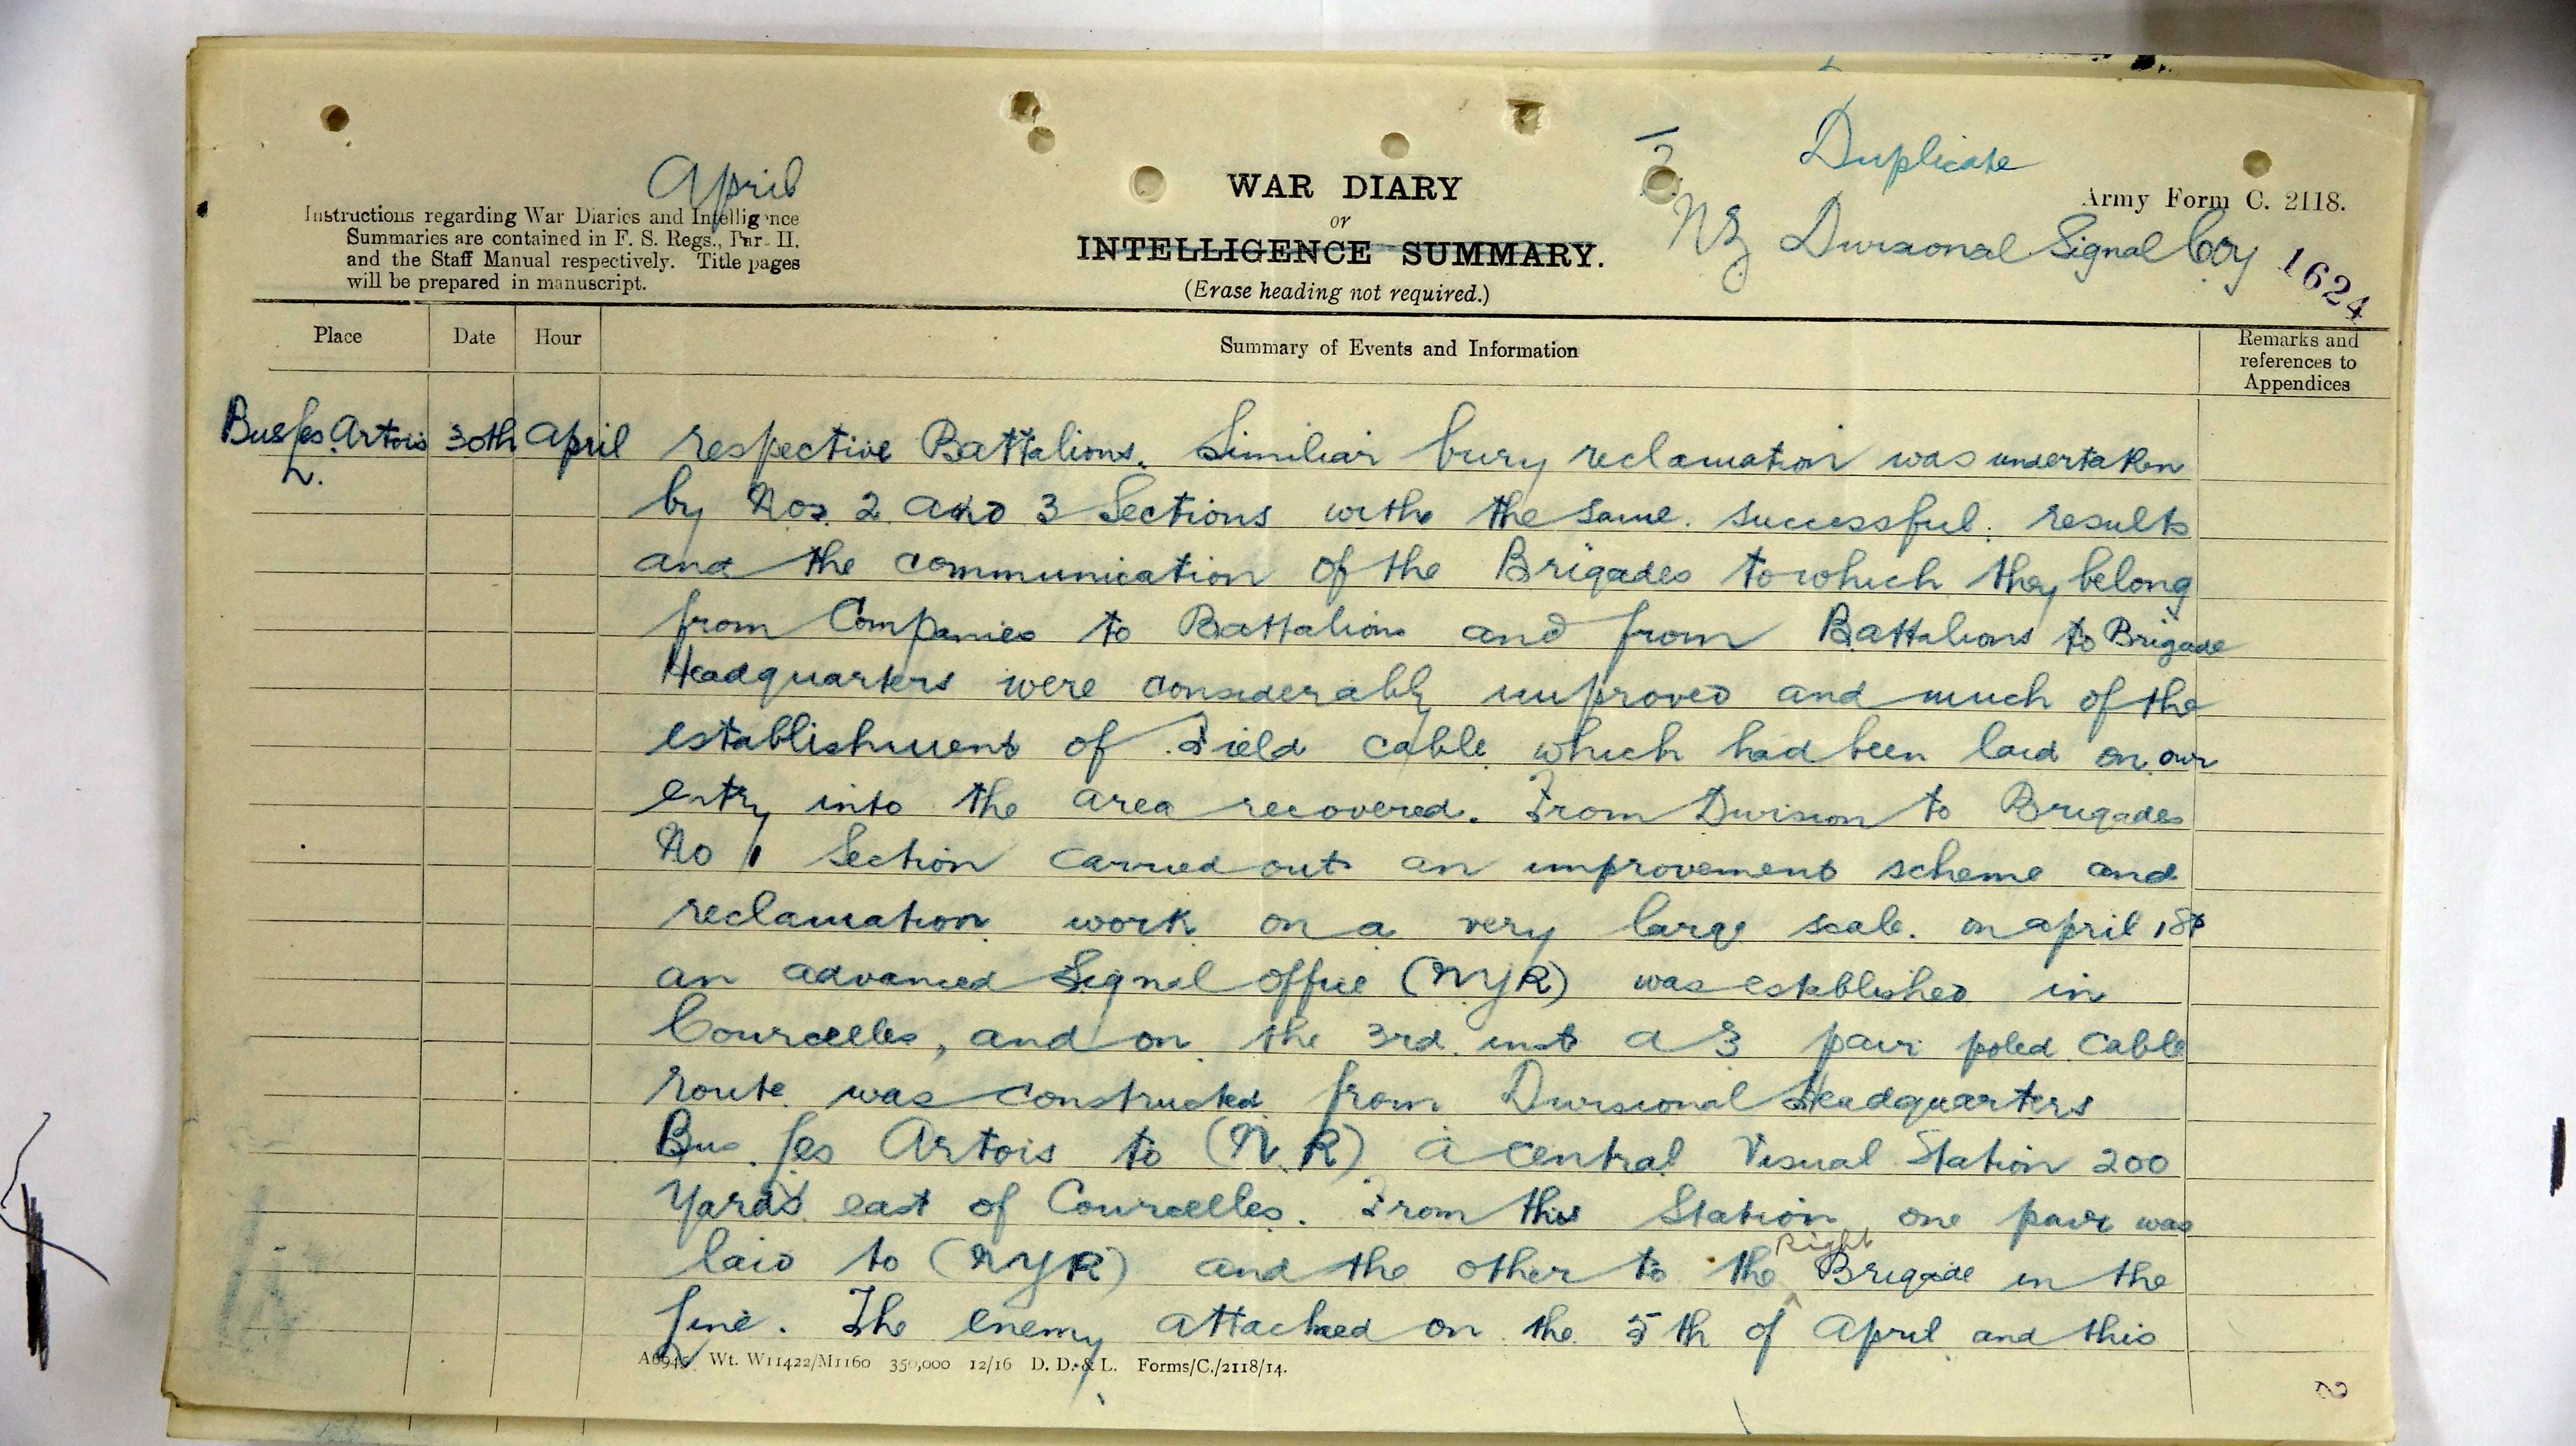 April
Duplicate
Instructions regarding War Diaries and Intelligence
Summaries are contained in F. S. Regs., Part II.
and the Staff Manual respectively. Title pages
will be prepared in manuscript.
WAR DIARY
or
INTELLIGENCE SUMMARY.
(Erase heading not required.)
Army Form C. 2118.
NZ Divisional Signal Coy
1624
Place Date Hour Summary of Events and Information Remarks and references to Appendices
Bus les Artois 30th April respective Battalions. Similiar bury reclamation was undertaken
by Nos. 2 and 3 Sections with the same successful results
and the communication of the Brigades to which they belong
from Companies to Battalions and from Battalions to Brigade
Headquarters were considerably improved and much of the
establishment of Field cable which had been laid on our
entry into the area recovered. From Division to Brigades
No 1 Section carried out an improvement scheme and
reclamation work on a very large scale. on april 1st
an advanced Signal office (NYR) was established in
Courcelles, and on the 3rd inst a 3 pair poled cable
route was constructed from Divisional Headquarters
Bus les Artois to (N.R) a central Visual Station 200
Yards east of Courcelles. From this Station one pair was
laid to (NYR) and the other to the Right Brigade in the
line. The enemy attacked on the 5th of April and this
A6945 Wt. W11422/M1160 350,000 12/16 D. D. & L. Forms/C./2118/14.
2